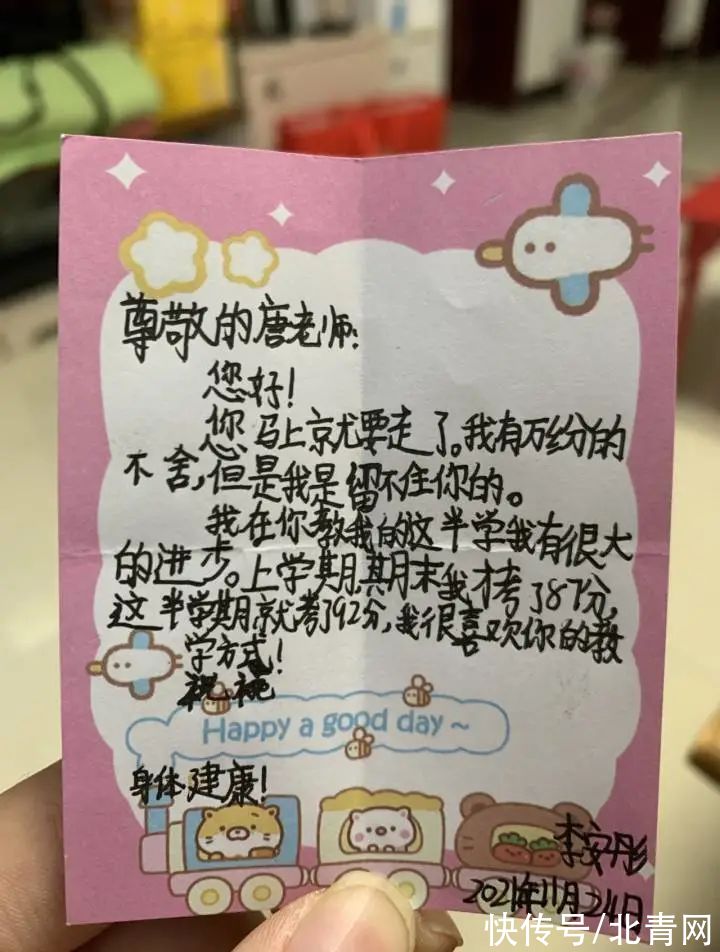 尊敬的唐老师:
您好!
您马上就要走了。我有万分的
不舍,但是我是留不住你的。
我在你教我的这半学我有很大
的进步。上学期,期末我才考了87分,
这半学期就考了92分,我很喜欢你的教
学方式!
祝
Happy a good day ~
身体建康!
李安彤
2021年11月24日
快传号/北青网